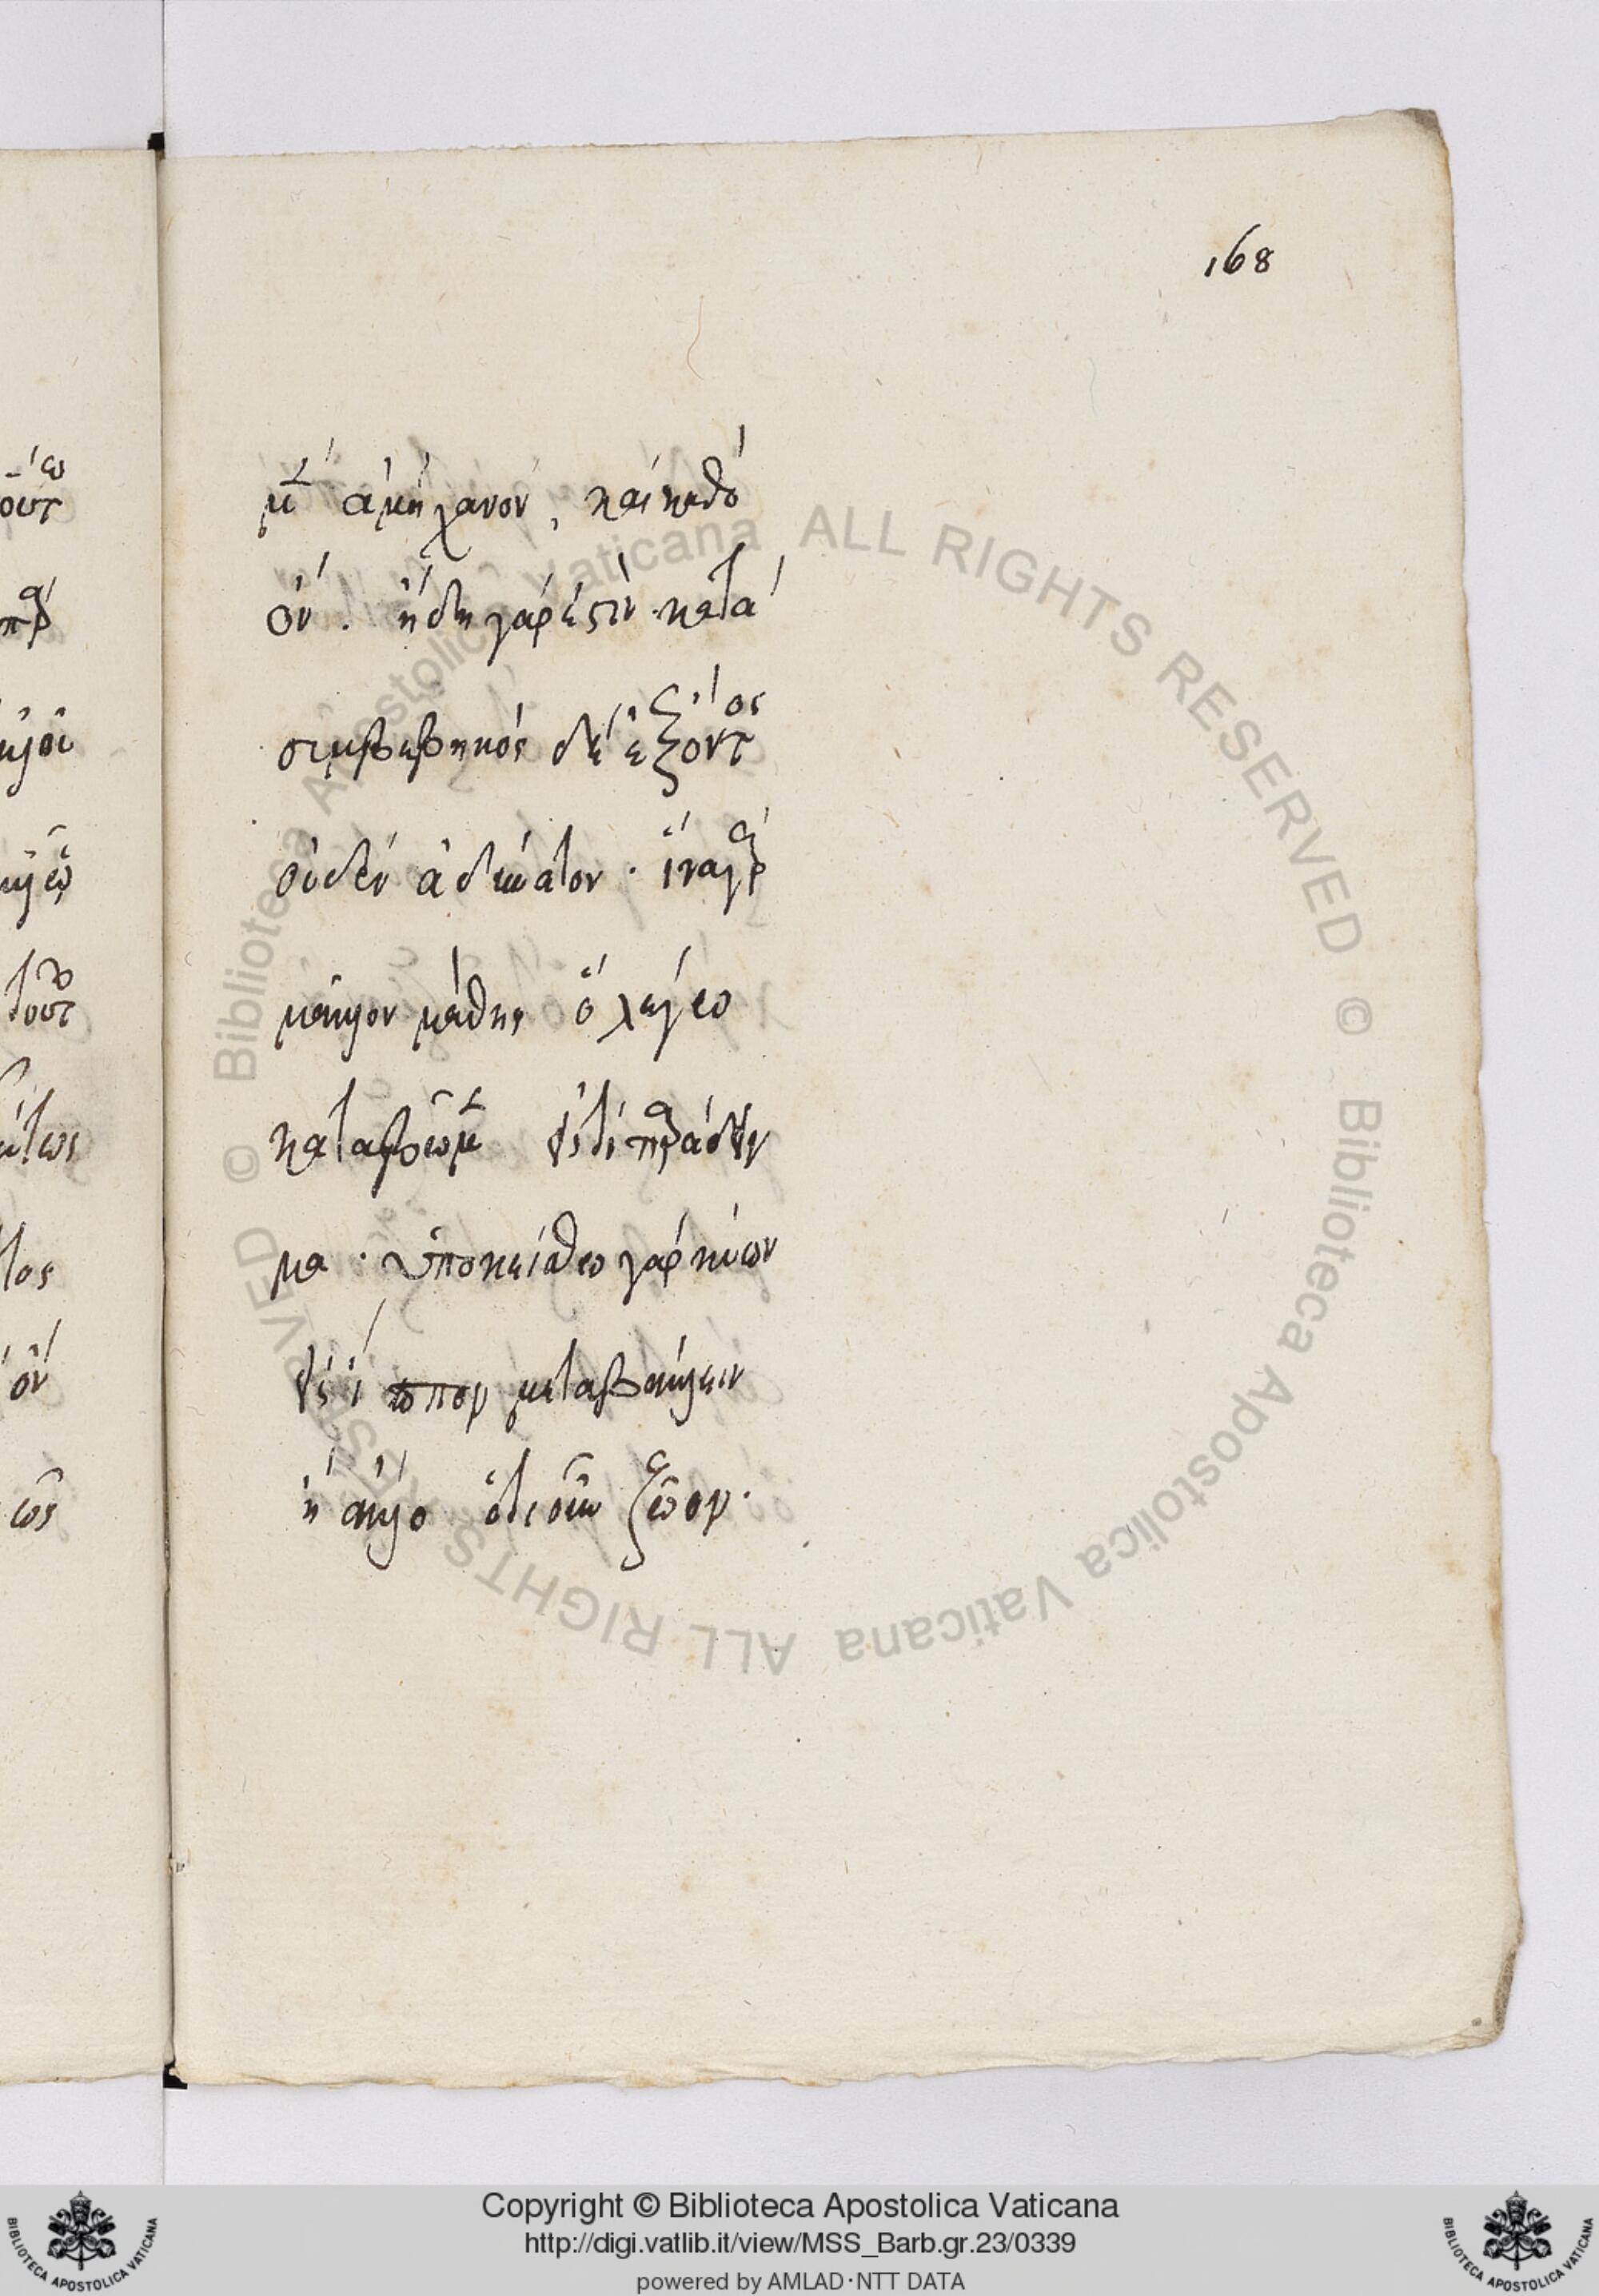 168
μὲν ἀμήχανον, καὶ καθὸ
ὄν. ἤδη γάρ ἐστιν. κατὰ
συμβεβηκὸς δὲ ἐξ ὄντος
οὐδὲν ἀδύνατον. ἵνα γὰρ
μᾶλλον μάθῃς ὃ λέγω
καταβῶμεν ἐπί τι παράδειγ
μα. ὑποκείσθω γὰρ κύων
εἰς ἵππον μεταβάλλειν
ἢ ἄλλο ὁτιοῦν ζῶον.
ον
ως
© Biblioteca Apostolica Vaticana ALL RIGHTS RESERVED © Biblioteca Apostolica Vaticana ALL RIGHTS RESERVED
Copyright © Biblioteca Apostolica Vaticana
http://digi.vatlib.it/view/MSS_Barb.gr.23/0339
powered by AMLAD·NTT DATA
BIBLIOTECA APOSTOLICA VATICANA
BIBLIOTECA APOSTOLICA VATICANA